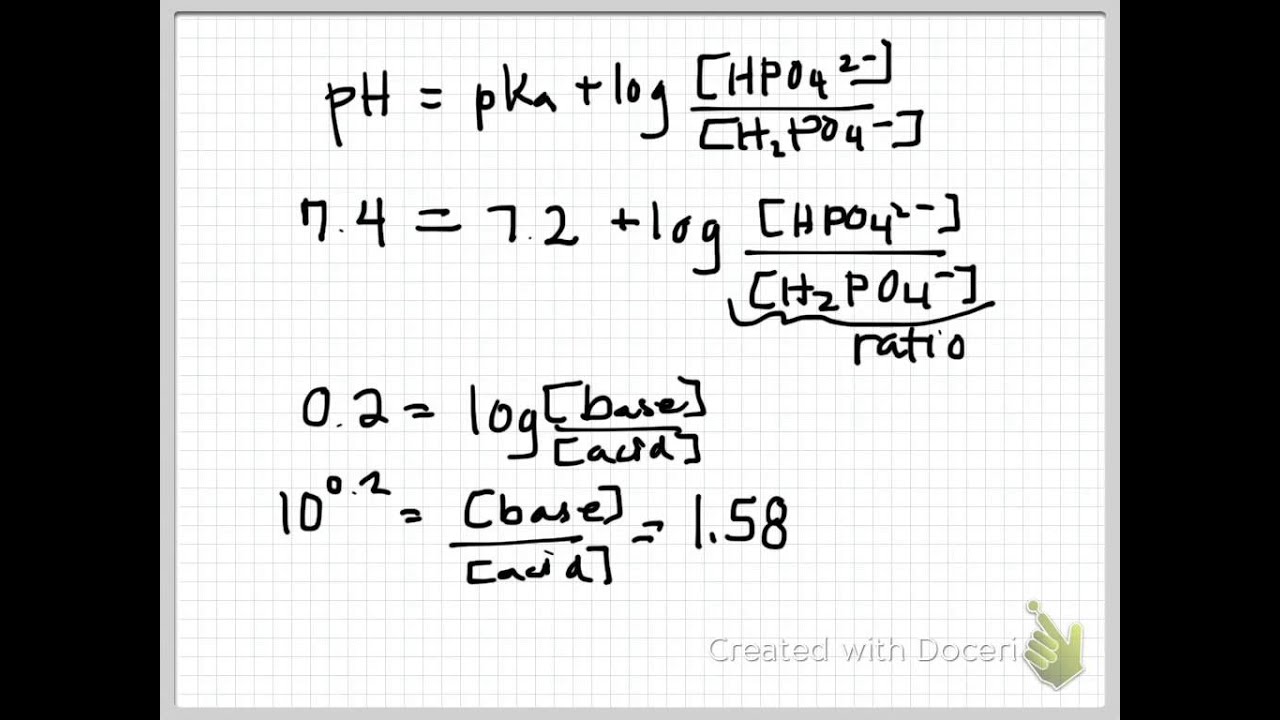 pH = pKa + log [HPO4²⁻] / [H₂PO4⁻]
7.4 = 7.2 + log [HPO4²⁻] / [H₂PO4⁻]
ratio
0.2 = log [base] / [acid]
10^0.2 = [base] / [acid] = 1.58
Created with Doceri